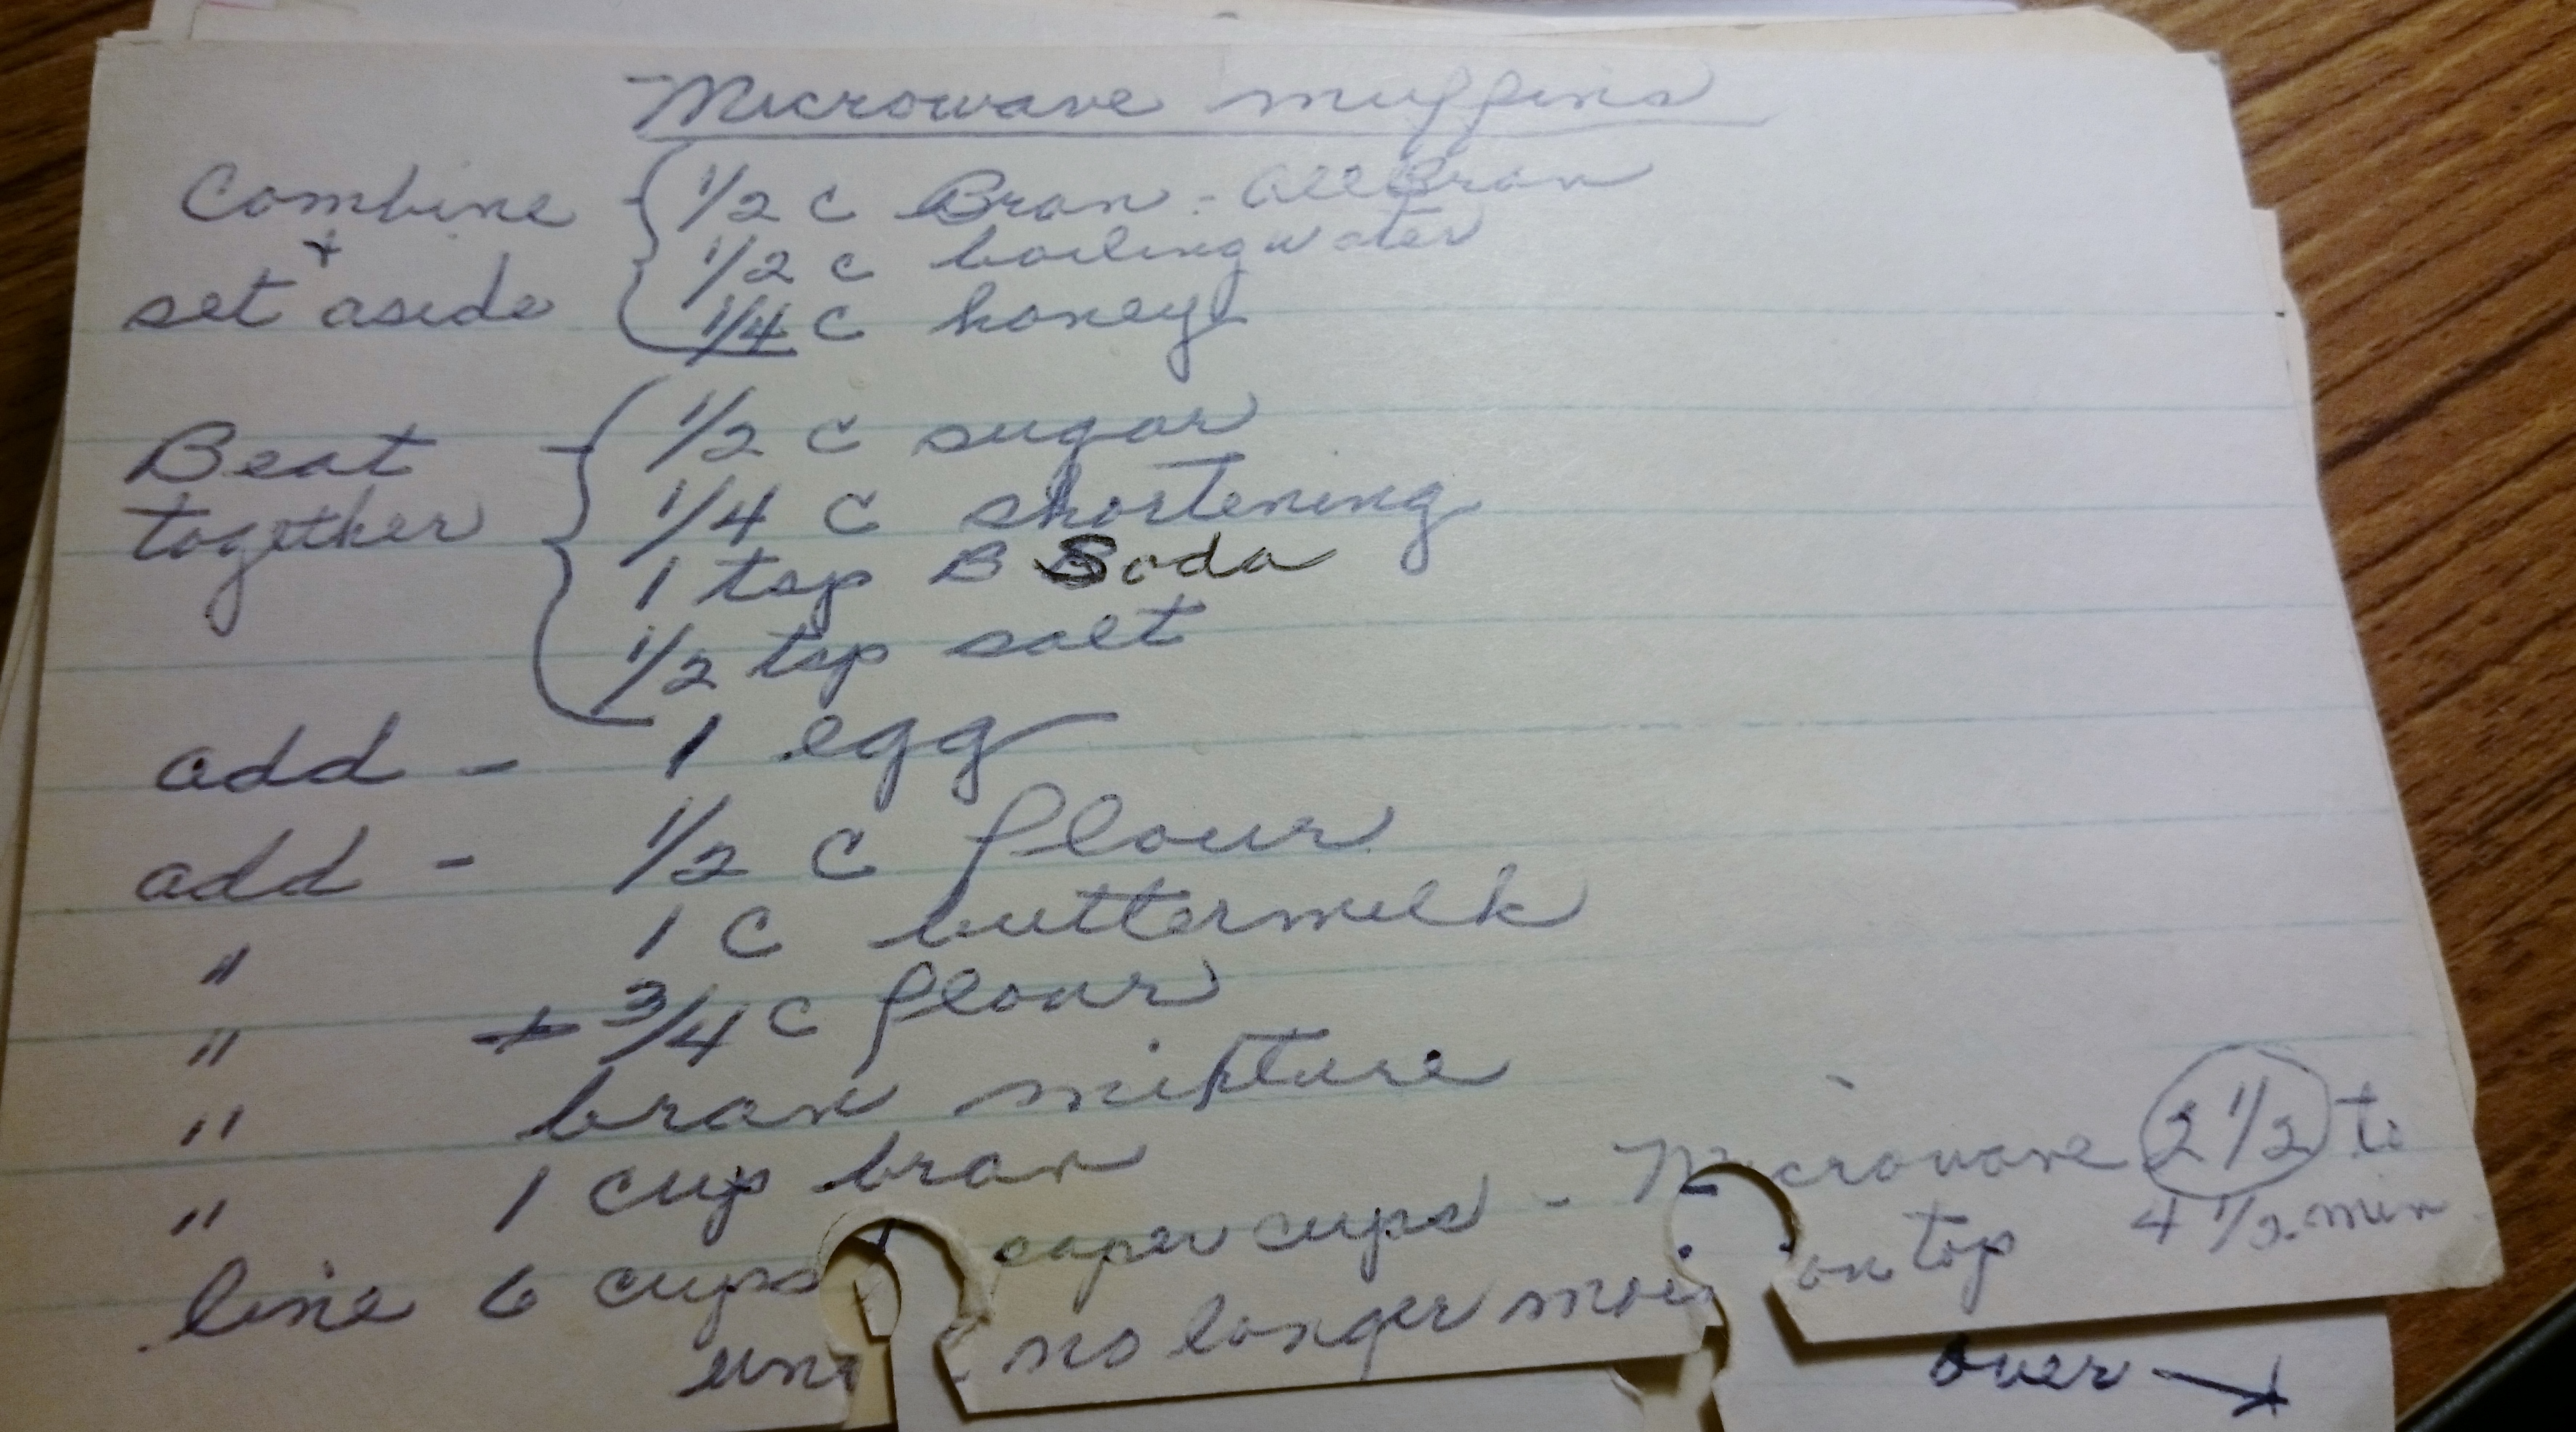 Microwave muffins
Combine + set aside { 1/2 c Bran - All Bran
1/2 c boiling water
1/4 c honey
Beat together { 1/2 c sugar
1/4 c shortening
1 tsp B Soda
1/2 tsp salt
add - 1 egg
add - 1/2 c flour
" 1 c buttermilk
" + 3/4 c flour
" bran mixture
" 1 cup bran
line 6 cups paper cups - Microwave 2 1/2 to 4 1/2 min
no longer on top
over →